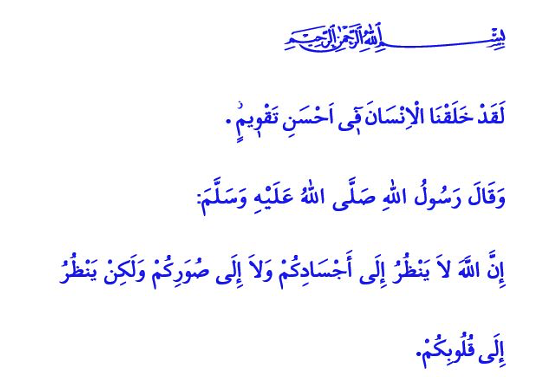 بِسْمِ اللهِ الرَّحْمٰنِ الرَّحِيمِ
لَقَدْ خَلَقْنَا الْاِنْسَانَ فٖى اَحْسَنِ تَقْوٖيمٍۘ .
وَقَالَ رَسُولُ اللهِ صَلَّى اللهُ عَلَيْهِ وَسَلَّمَ:
إِنَّ اللَّهَ لاَ يَنْظُرُ إِلَى أَجْسَادِكُمْ وَلاَ إِلَى صُوَرِكُمْ وَلَكِنْ يَنْظُرُ
إِلَى قُلُوبِكُمْ.